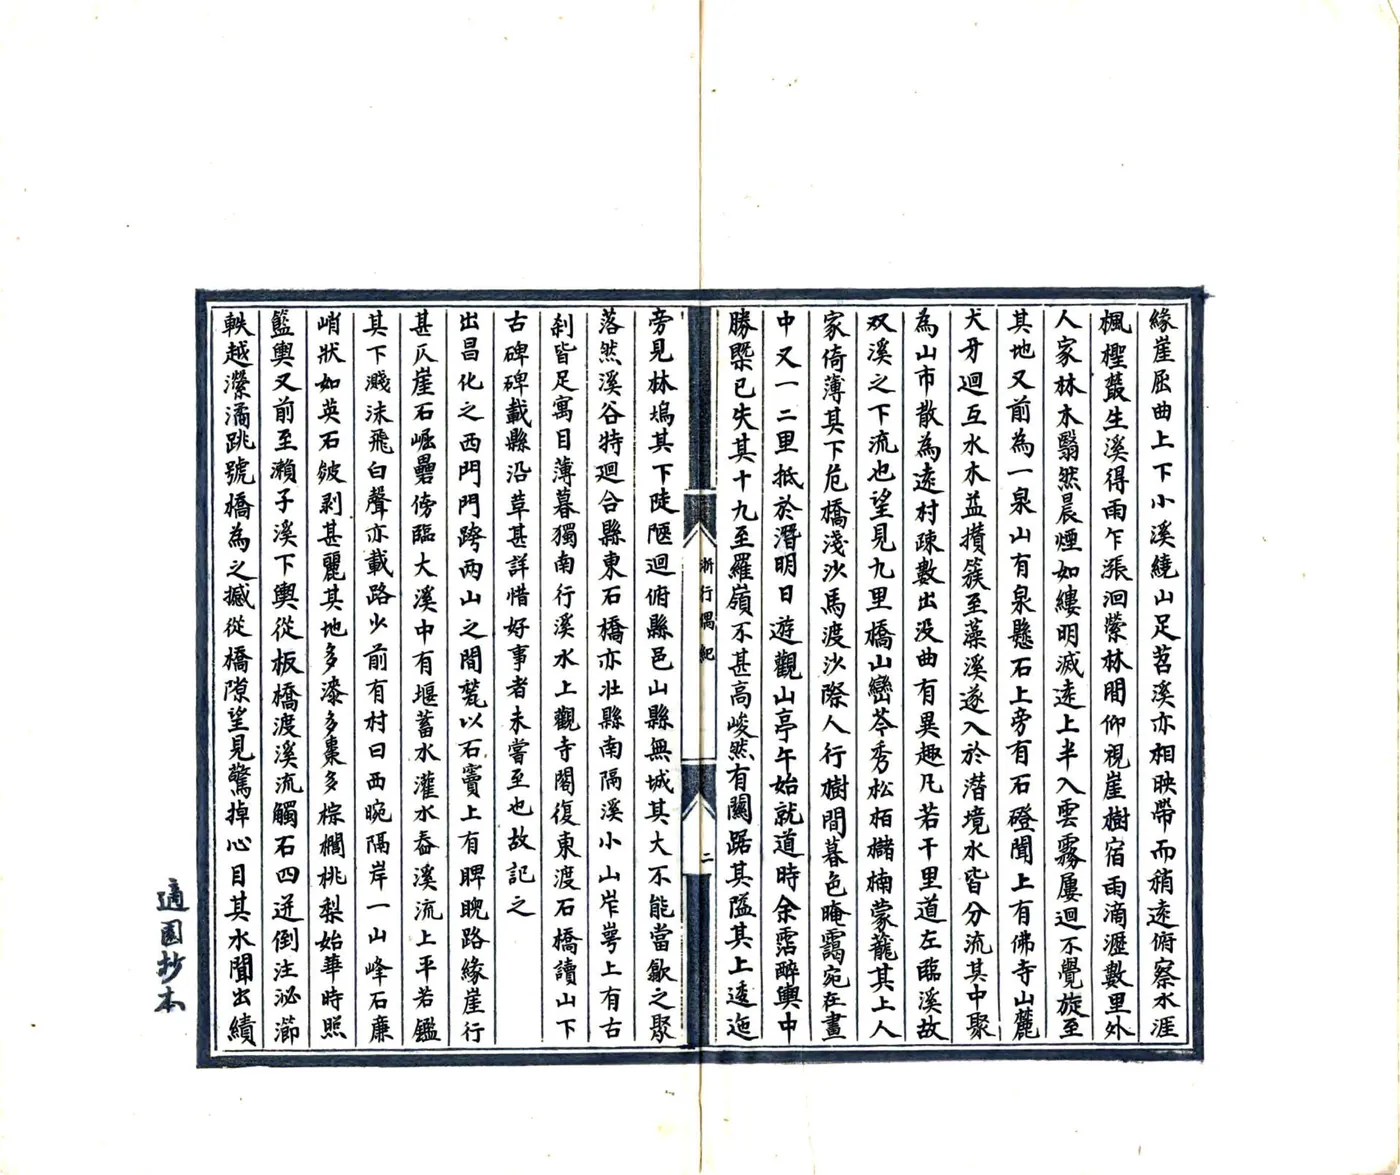 緣崖屈曲上下小溪繞山足苕溪亦相映帶而稍遠俯察水涯
楓檉叢生溪得雨乍漲洄縈林間仰視崖樹宿雨滴瀝數里外
人家林木翳然晨煙如縷明滅遠上半入雲霧屢迴不覺旋至
其地又前為一泉山有泉懸石上旁有石磴聞上有佛寺山麓
犬牙迴互水木益攢簇至藻溪遂入於潛境水皆分流其中聚
為山市散為遠村疎數出没曲有異趣凡若干里道左臨溪故
双溪之下流也望見九里橋山巒苓秀松栢櫧楠蒙蘢其上人
家倚薄其下危橋淺沙馬渡沙際人行樹間暮色晻靄宛在畫
中又一二里抵於潛明日遊觀山亭午始就道時余霑醉輿中
勝槩已失其十九至羅嶺不甚高峻然有關踞其隘其上逶迤
浙行偶紀
二
旁見林塢其下陡陿迴俯縣邑山縣無城其大不能當歙之聚
落然溪谷特迴合縣東石橋亦壮縣南隔溪小山岸崿上有古
刹皆足寓目薄暮獨南行溪水上觀寺閣復東渡石橋讀山下
古碑碑載縣沿草甚詳惜好事者未嘗至也故記之
出昌化之西門門跨两山之間甃以石竇上有睥睨路緣崖行
甚仄崖石崛礨傍臨大溪中有堰蓄水灌水舂溪流上平若鑑
其下濺沫飛白聲亦載路少前有村曰西晼隔岸一山峰石廉
峭狀如英石皴剥甚麗其地多漆多棗多棕櫚桃梨始華時照
籃輿又前至瀨子溪下輿從板橋渡溪流觸石四迸倒注泌㵧
軼越瀠潏跳號橋為之撼從橋隙望見驚掉心目其水聞出績
適園抄本